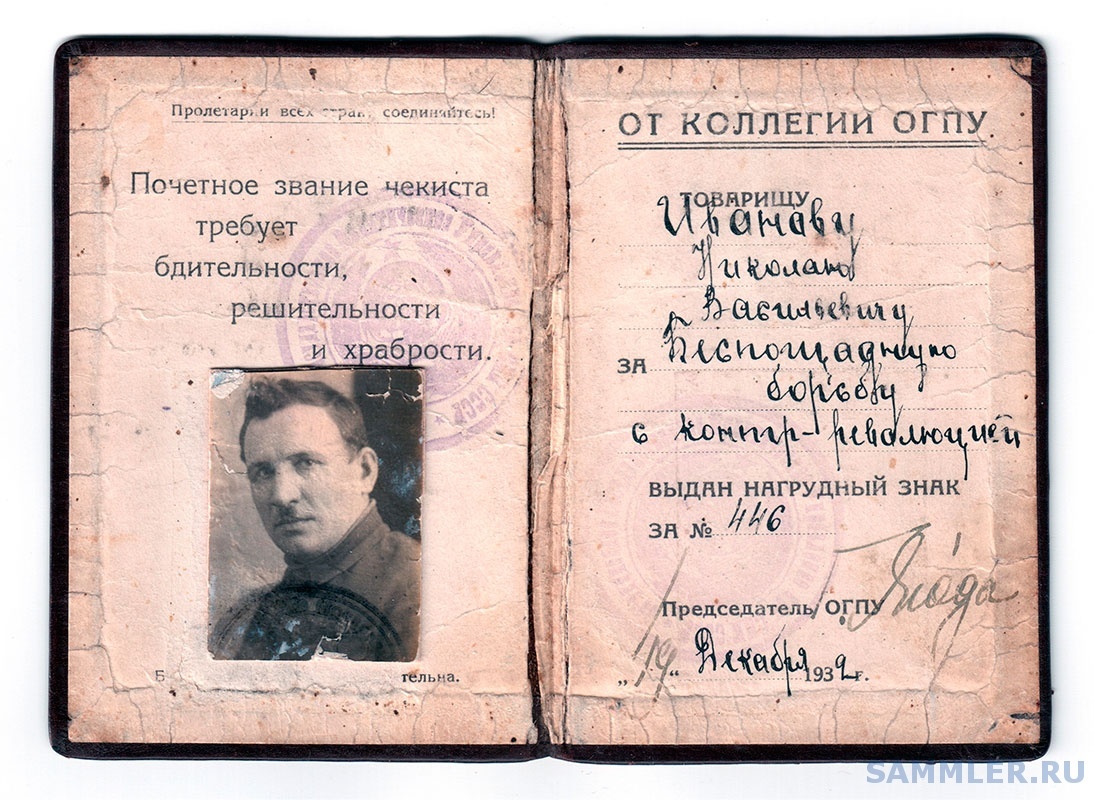 Пролетарии всех стран, соединяйтесь!
Почетное звание чекиста
требует
бдительности,
решительности
и храбрости.
Б тельна.
ОТ КОЛЛЕГИИ ОГПУ
ТОВАРИЩУ
Иванову
Николаю
Васильевичу
ЗА Беспощадную
борьбу
с контр-революцией
ВЫДАН НАГРУДНЫЙ ЗНАК
ЗА № 446
Председатель ОГПУ Ягода
„19“ Декабря 1932 г.
SAMMLER.RU